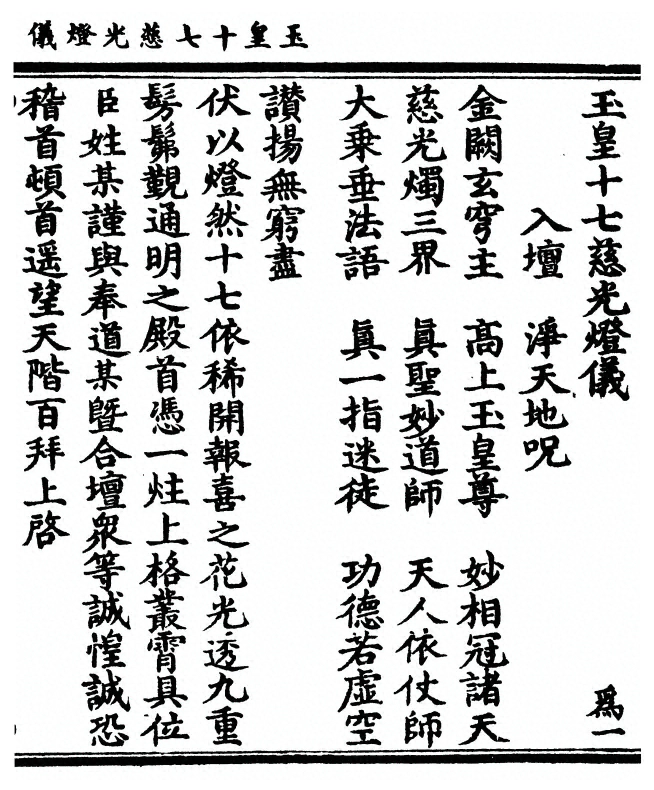 玉皇十七慈光燈儀
玉皇十七慈光燈儀 爲一
入壇 淨天地呪
金闕玄穹主 高上玉皇尊 妙相冠諸天
慈光燭三界 眞聖妙道師 天人依仗師
大乘垂法語 眞一指迷徒 功德若虛空
讃揚無窮盡
伏以燈然十七依稀開報喜之花光透九重
髣髴觀通明之殿首憑一炷上格叢霄具位
臣姓某謹與奉道某曁合壇衆等誠惶誠恐
稽首頓首遥望天階百拜上啓